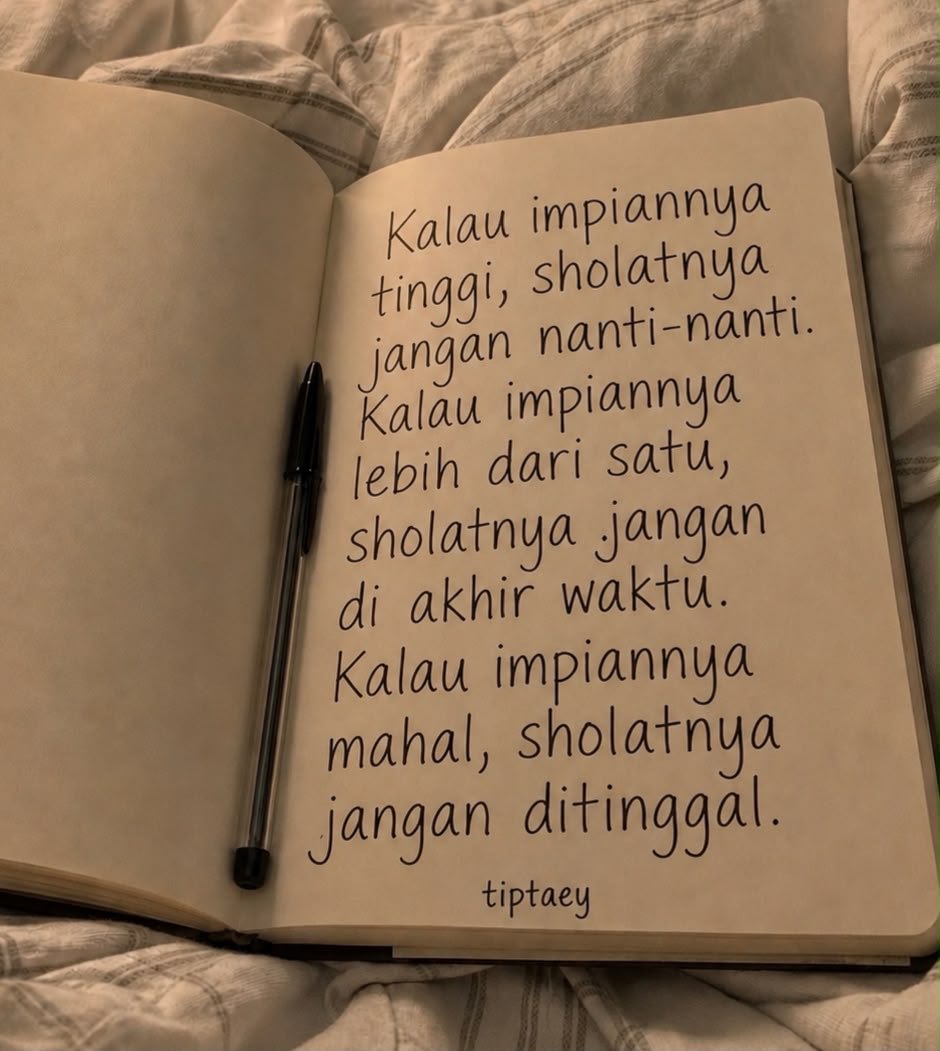 Kalau impiannya
tinggi, sholatnya
jangan nanti-nanti.
Kalau impiannya
lebih dari satu,
sholatnya jangan
di akhir waktu.
Kalau impiannya
mahal, sholatnya
jangan ditinggal.
tiptaey